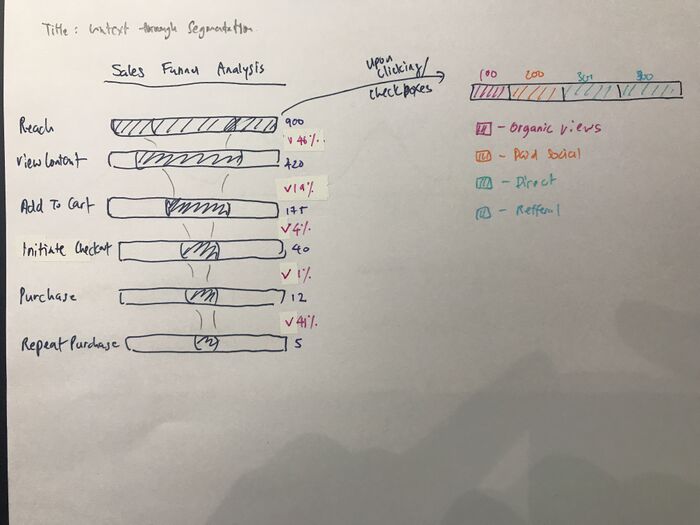 Title: Context through Segmentation.
Sales Funnel Analysis
Upon
Clicking/
checkboxes
100 200 300 300
Reach 900
↓ 46%
View Content 420
↓ 19%
Add To Cart 175
↓ 4%
Initiate Checkout 40
↓ 1%
Purchase 12
↓ 41%
Repeat Purchase 5
- Organic views
- Paid Social
- Direct
- Refferal